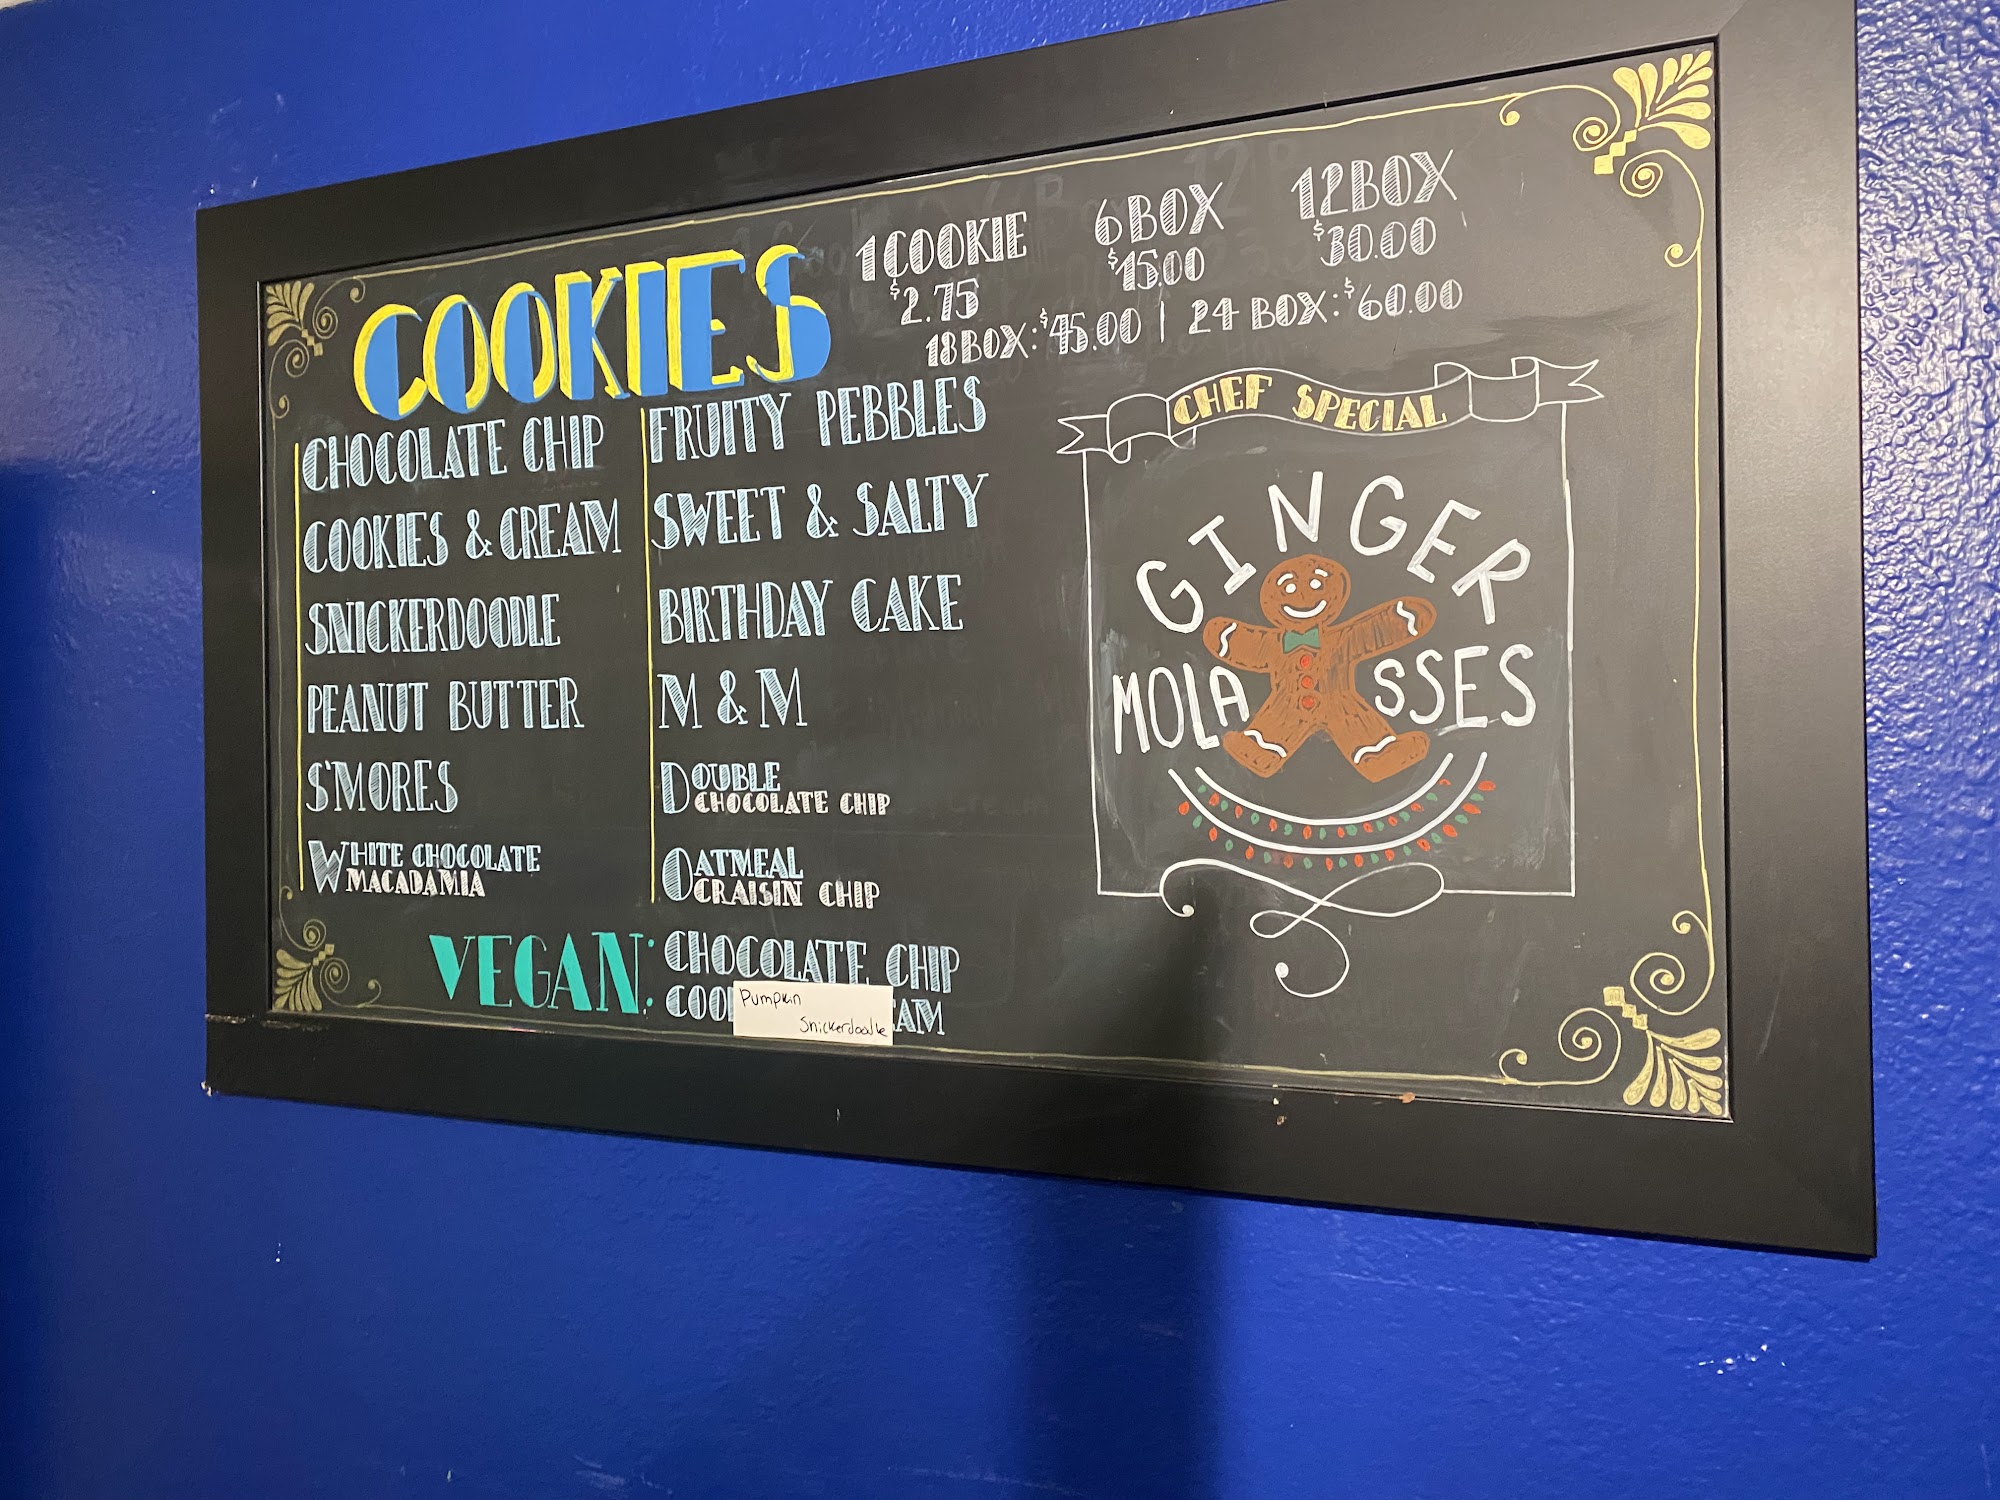 COOKIES
1 COOKIE
$2.75
6 BOX
$15.00
12 BOX
$30.00
18 BOX: $45.00 | 24 BOX: $60.00
CHOCOLATE CHIP
COOKIES & CREAM
SNICKERDOODLE
PEANUT BUTTER
S'MORES
WHITE CHOCOLATE
MACADAMIA
FRUITY PEBBLES
SWEET & SALTY
BIRTHDAY CAKE
M & M
DOUBLE
CHOCOLATE CHIP
OATMEAL
CRAISIN CHIP
VEGAN: CHOCOLATE CHIP
Pumpkin
Snickerdoodle
CHEF SPECIAL
GINGER
MOLASSES